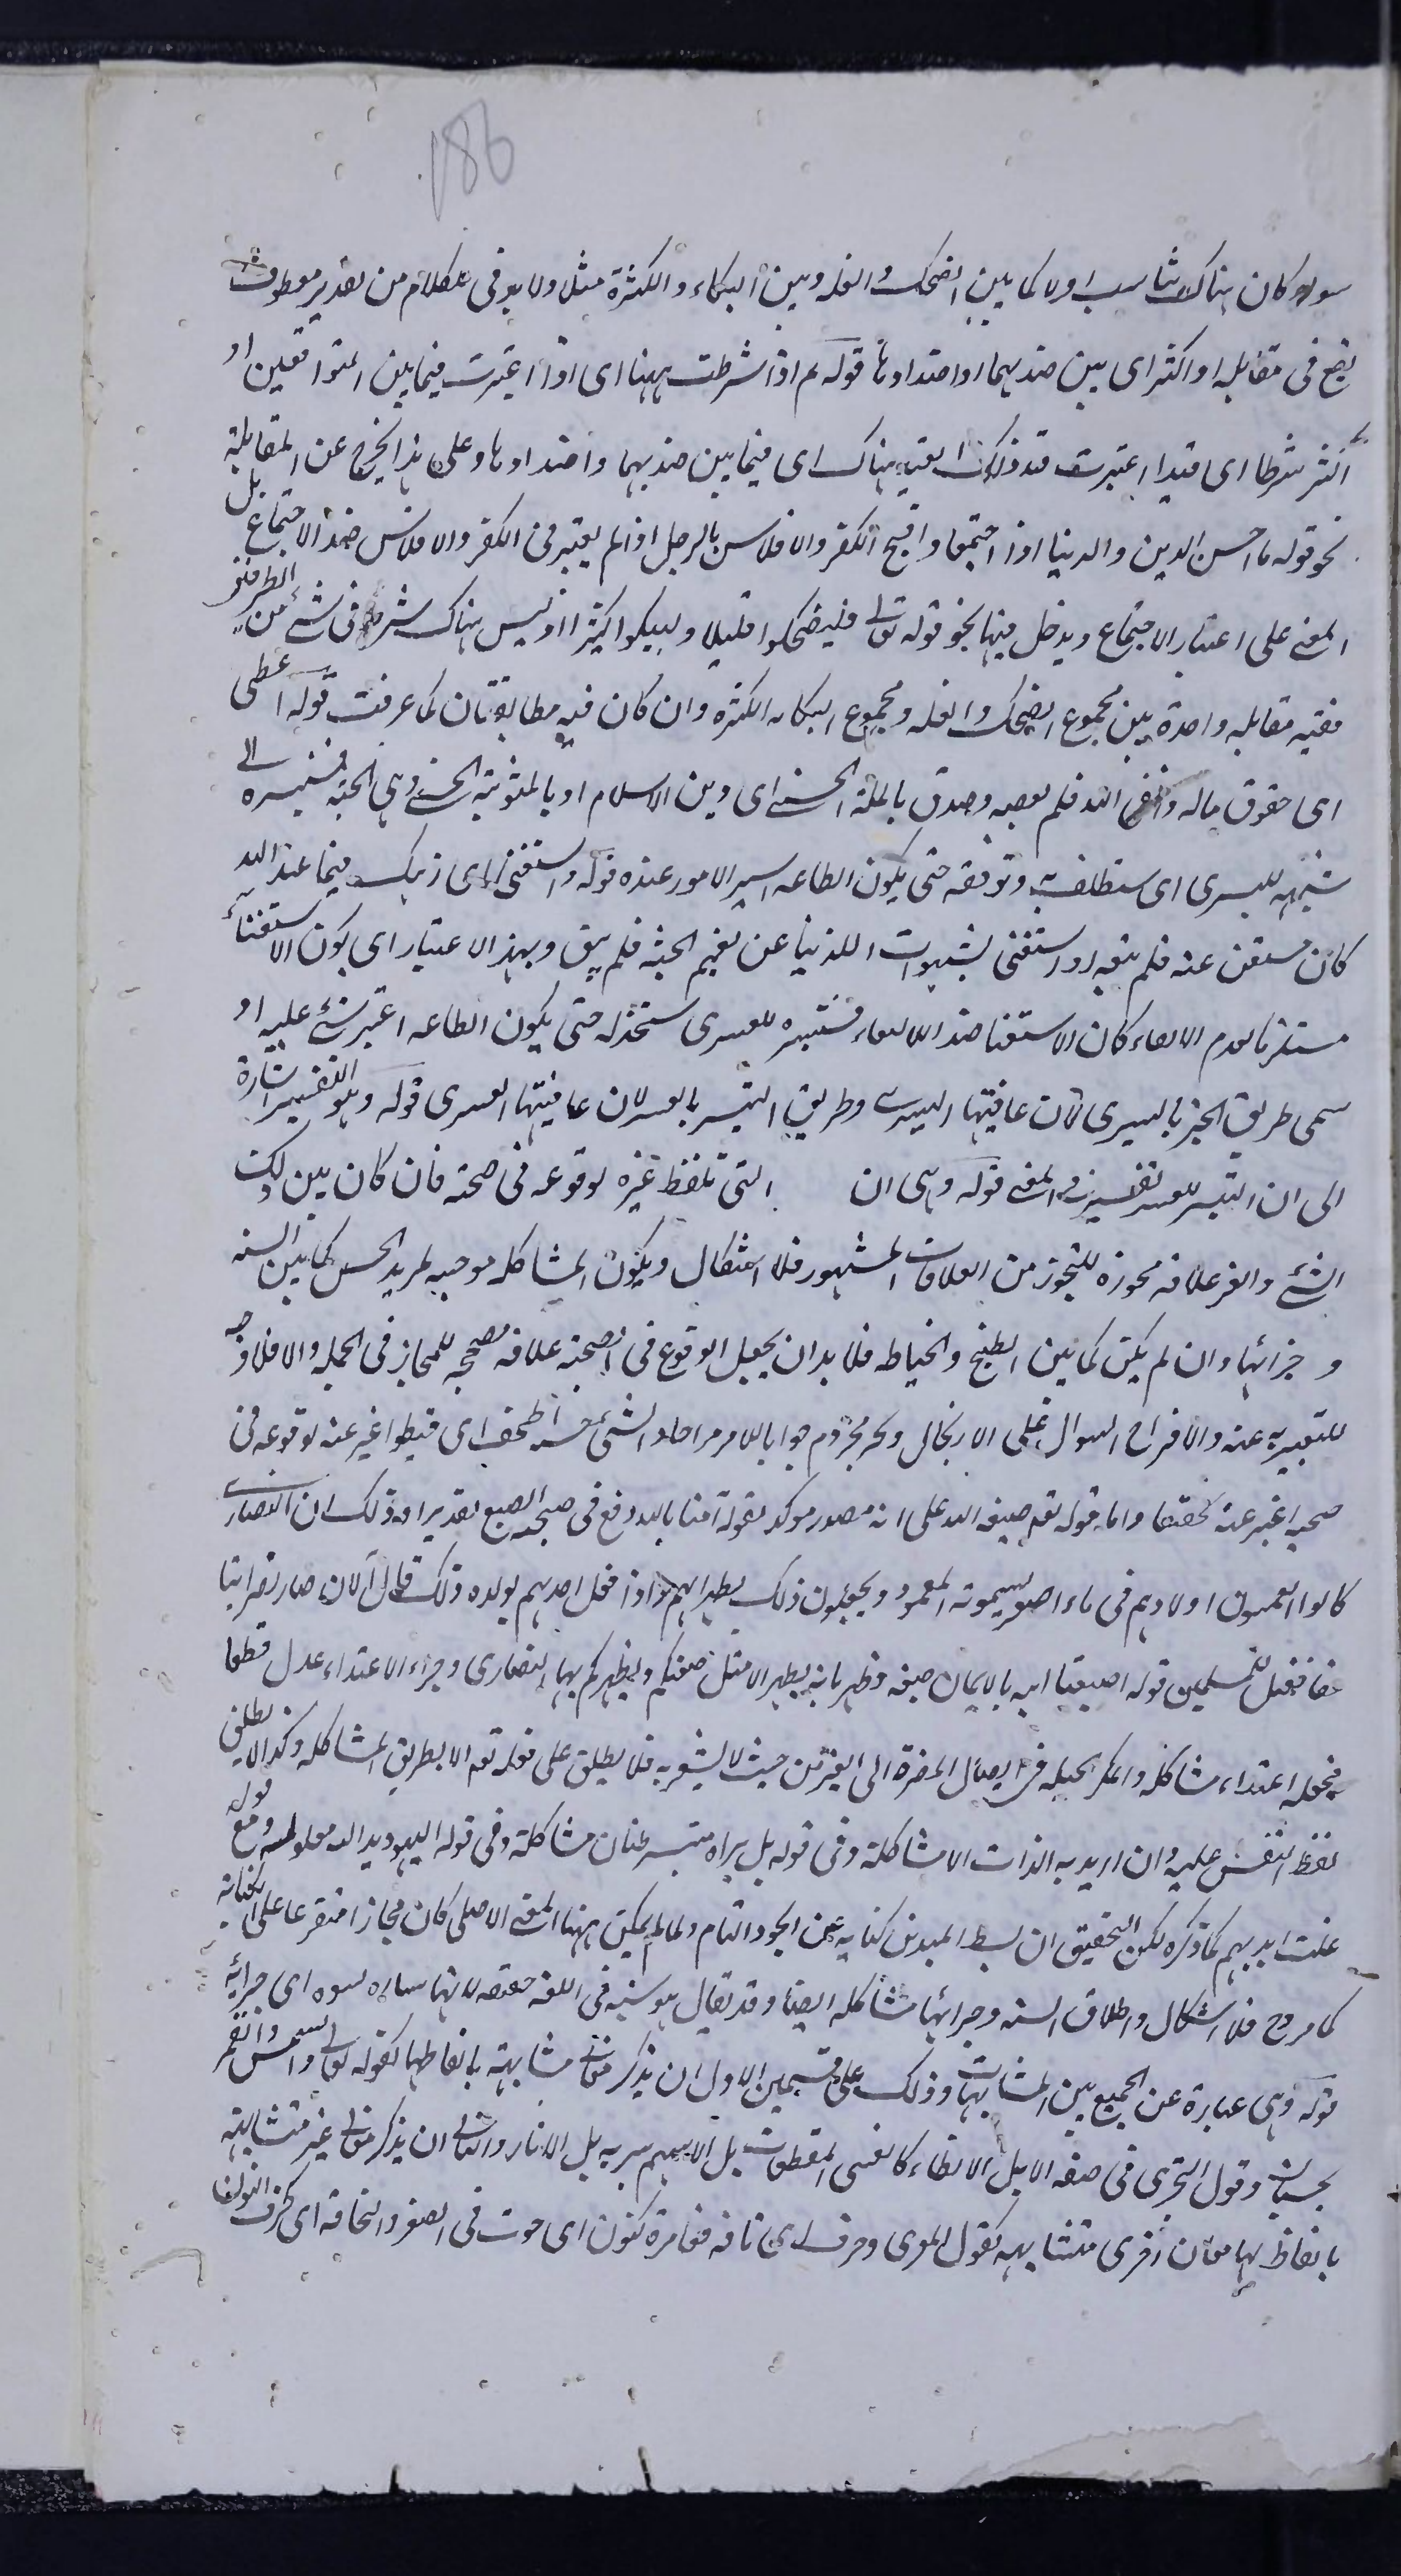 186
سواء كان هناك تناسب اولا كما بين الضحك والقلة وبين البكاء والكثرة مثلا ولا بد فى الكلام من تقدير معطوف
يقع فى مقابله او اكثر اى بين ضديهما او اضدادها قوله ثم اذا شرطت ههنا اى اذا اعتبرت فيما بين المتوافقين او
اكثر شرطا اى قيدا اعتبرت ضد ذلك القيد هناك اى فيما بين ضديهما واضدادها وعلى هذا يخرج عن المقابلة
نحو قوله ما احسن الدين والدنيا اذا اجتمعا واقبح الكفر والافلاس بالرجل اذ لم يعتبر فى الكفر والافلاس ضد الاجتماع بل
المعنى على اعتبار الاجتماع ويدخل فيها نحو قوله تعالى فليضحكوا قليلا وليبكوا كثيرا اذ ليس هناك شرط فى شئ من الطرفين
ففيه مقابلة واحدة بين مجموع الضحك والقلة ومجموع البكاء الكثرة وان كان فيه مطابقتان كما عرفت قوله اعطى
اى حقوق ماله واتقى الله فلم يعصه وصدق بالملة الحسنى اى دين الاسلام او بالمثوبة الحسنى وهى الجنة فسنيسره الى
لليسرى اى وتوفقه حتى يكون الطاعة ايسر الامور عنده قوله واستغنى اى زهد فيما عند الله
كانه مستغن عنه فلم يتقه او استغنى بشهوات الدنيا عن نعيم الجنة فلم يتق وبهذا الاعتبار اى يكون الاستغناء
مستلزما لعدم الاتقاء كان الاستغنا ضد الاتقاء فسنيسره للعسرى سنخذله حتى يكون الطاعة شئ عليه او
سمى طريق الخير باليسرى لان عاقبتها اليسرى وطريق الشر بالعسر لان عاقبتها العسرى قوله وهو التفسير اشارة
الى ان قوله وهى ان التى تلفظ غيره لوقوعه فى صحبته فان كان بين ذلك
الشئ والغير علاقة مجوزة للتجوز من العلاقات المشهورة فلا اشكال ويكون المشاكلة موجبه لمزيد الحسن كما بين السيئة
وجزائها وان لم يكن كما بين الطبخ والخياطة فلا بد ان يجعل الوقوع فى الصحبة علاقة مصححة للمجاز فى الجملة والا فلا وجه
للتعبير به عنه والاقتراح السوال على الارتجال ونجد مجزوم جوابا للامر من اجاد الشئ
صحبة غير عنه تحقيقا واما قوله تعم صبغة الله على انه مصدر موكد لقوله امنا بالله وقع فى صحبة الصبغ تقديرا وذلك ان النصارى
كانوا يغمسون اولادهم فى ماء اصفر يسمونه المعمودية ويجعلون ذلك تطهيرا لهم واذا فعل احدهم بولده ذلك قال الان صار نصرانيا
حقا فقيل للمسلمين قولوا صبغنا الله بالايمان صبغة وطهرنا به تطهيرا لا مثل صبغتكم وتطهيركم بها النصارى وجزاء الاعتداء عدل قطعا
فجعله اعتداء مشاكلة والمكر الحيلة فى ايصال المضرة الى الغير من حيث لا يشعر به فلا يطلق على فعله تعم الا بطريق المشاكلة وكذا لا يطلق
لفظ النفس عليه وان اريد به الذات الا مشاكلة وفى قوله بل يداه مبسوطتان مشاكلة وفى قوله اليهود يد الله مغلولة وقع قوله
غلت ايديهم كما ذكره لكن التحقيق ان بسط اليدين كناية عن الجود التام ولما لم يمكن ههنا المعنى الاصلى كان مجازا متفرعا على الكناية
كما مر فلا اشكال واطلاق السيئة وجزائها مشاكلة ايضا وقد يقال هو سيئة فى اللغة حقيقة لانها اى جزائه
قوله وهى عبارة عن الجمع بين المتشابهات وذلك على قسمين الاول ان يذكر معانى متشابهة بالفاظها كقوله تعالى والشمس والقمر
بحسبان وقول البحترى فى صفة الابل الانضاء كالقسى المعطفات بل الاسهم مبرية بل الاوتار والثانى ان يذكر معانى غير متشابهة
بالفاظ لها معان اخرى متشابهة كقول المعرى وحرف اى ناقة ضامرة كنون اى حوت فى الصغر والنحافة اى